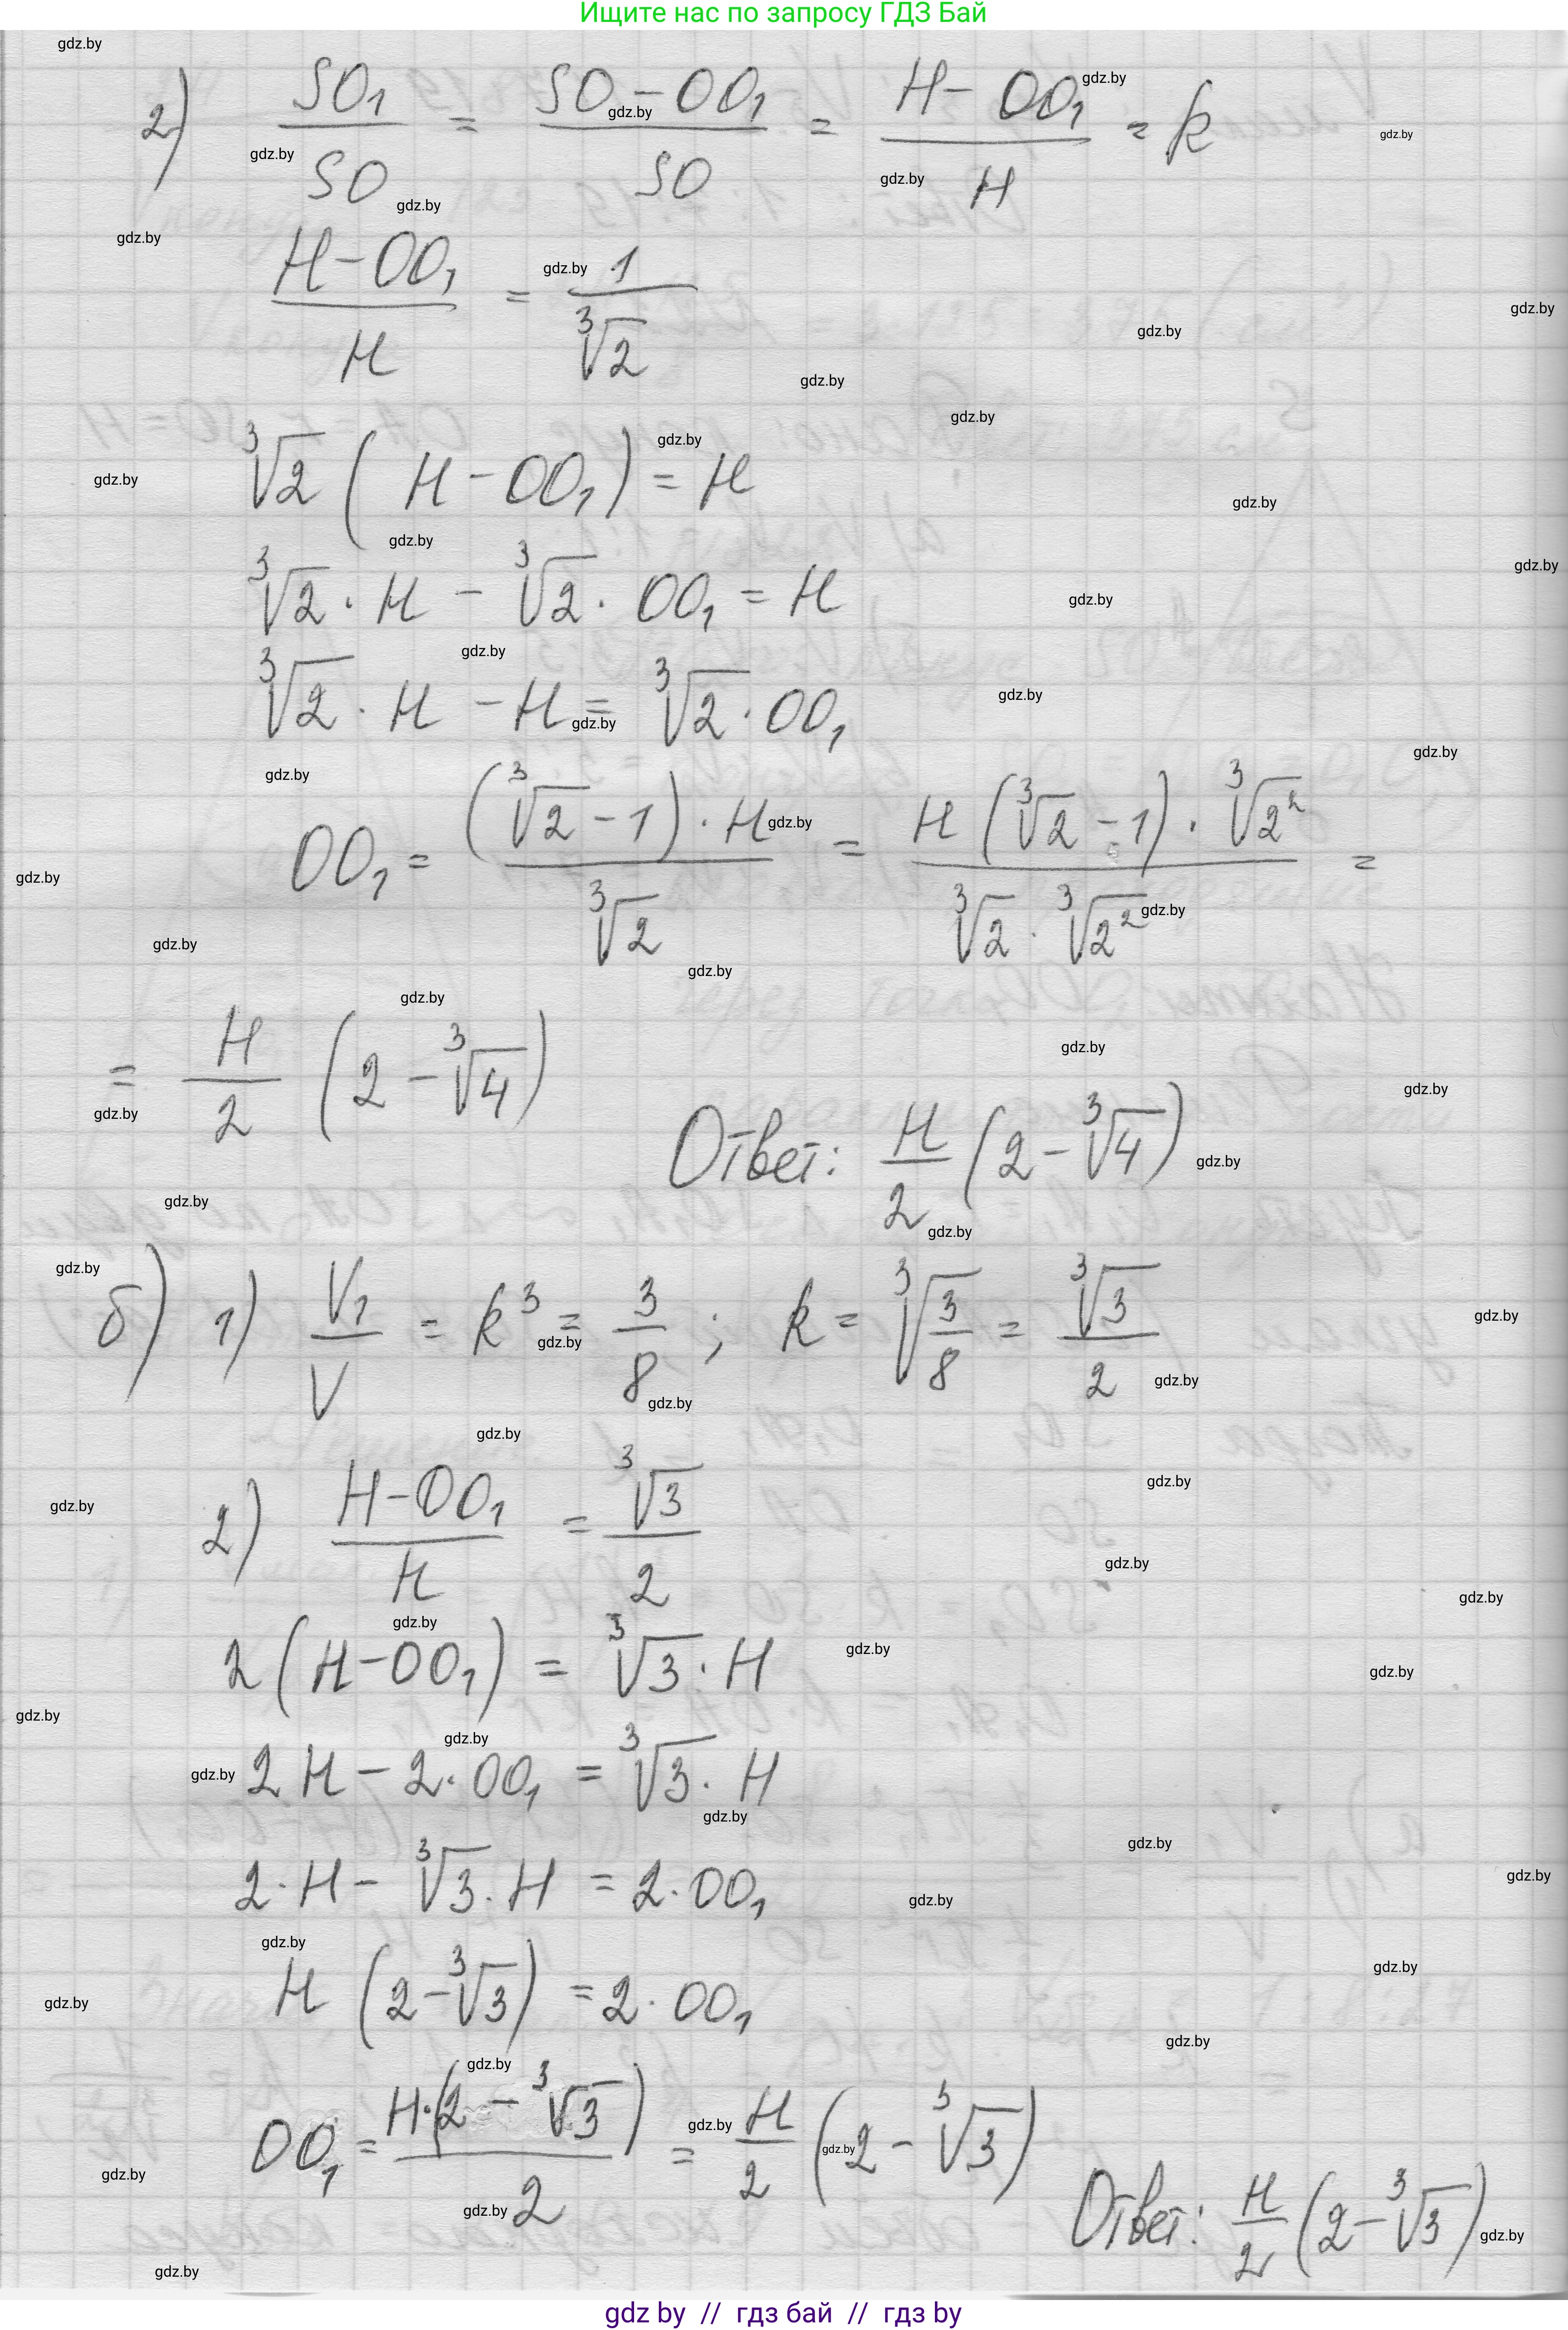 Ищите нас по запросу ГДЗ Бай
2) SO₁/SO = (SO - OO₁)/SO = (H - OO₁)/H = k
(H - OO₁)/H = 1/∛2
∛2 (H - OO₁) = H
∛2 · H - ∛2 · OO₁ = H
∛2 · H - H = ∛2 · OO₁
OO₁ = ((∛2 - 1) · H)/∛2 = (H (∛2 - 1) · ∛2²)/(∛2 · ∛2²) =
= H/2 (2 - ∛4)
Ответ: H/2 (2 - ∛4)
б) 1) V₁/V = k³ = 3/8 ; k = ∛(3/8) = ∛3/2
2) (H - OO₁)/H = ∛3/2
2 (H - OO₁) = ∛3 · H
2H - 2 · OO₁ = ∛3 · H
2 · H - ∛3 · H = 2 · OO₁
H (2 - ∛3) = 2 · OO₁
OO₁ = (H · (2 - ∛3))/2 = H/2 (2 - ∛3)
Ответ: H/2 (2 - ∛3)
gdz by // гдз бай // гдз by